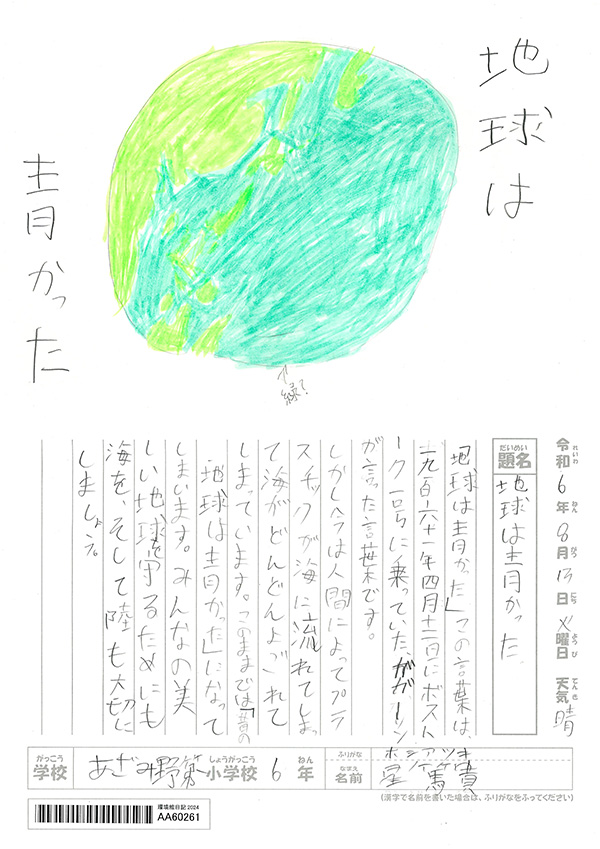 地球は
青かった
↑
緑?
令和6年8月13日火曜日 天気 晴
れいわ ねん がつ にち ようび てんき
だいめい
題名
地球は青かった
「地球は青かった」この言葉は、
一九百六十一年四月十二日にボスト
ーク一号に乗っていた、ガガーリン
が言った言葉です。
しかし今は人間によってプラ
スチックが海に流れてしまっ
て海がどんどんよごれて
しまっています。このままでは、「昔の
地球は青かった」になって
しまいます。みんなの美
しい地球を守るためにも
海を、そして陸も大切に
しましょう。
がっこう
学校
あざみ野第一
しょうがっこう
小学校
6
ねん
年
ふりがな
なまえ
名前
ホシノ アツキ
(漢字で名前を書いた場合は、ふりがなをふってください)
環境絵日記 2024
AA60261